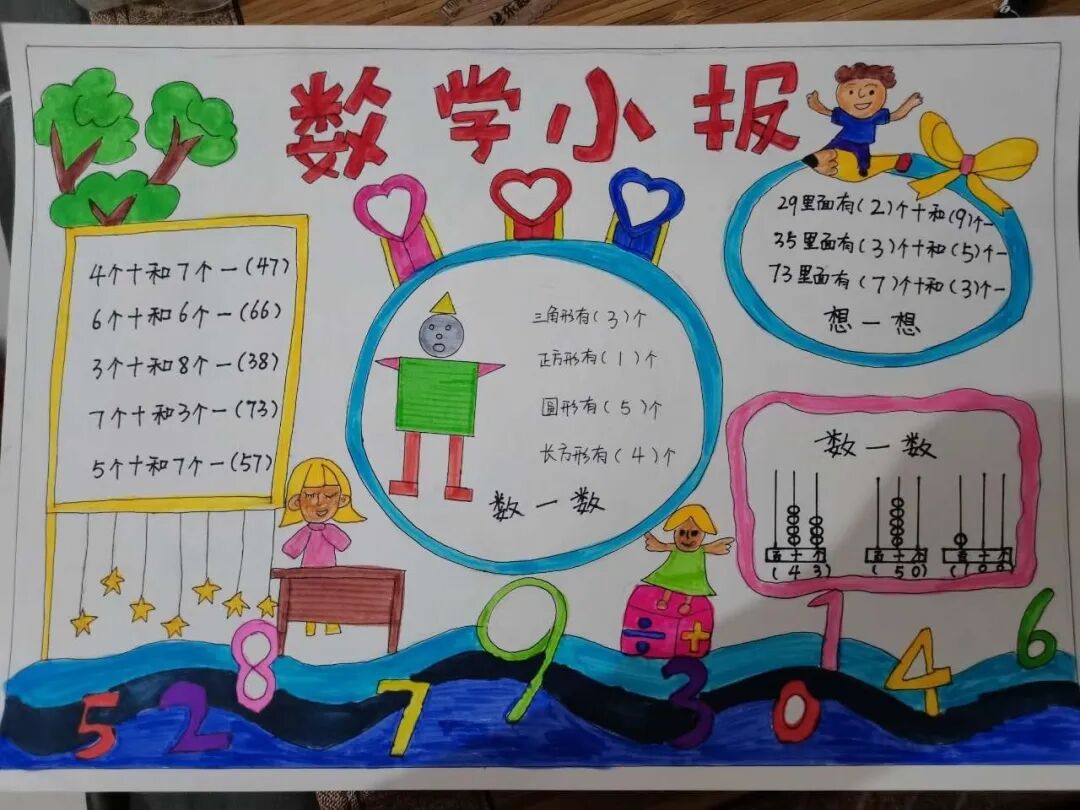 数学小报
4个十和7个一(47)
6个十和6个一(66)
3个十和8个一(38)
7个十和3个一(73)
5个十和7个一(57)
三角形有(3)个
正方形有(1)个
圆形有(5)个
长方形有(4)个
数一数
29里面有(2)个十和(9)个一
35里面有(3)个十和(5)个一
73里面有(7)个十和(3)个一
想一想
数一数
百十个 百十个 百十个
(43) (50) (100)
5 2 8 7 9 3 0 1 4 6
÷ +